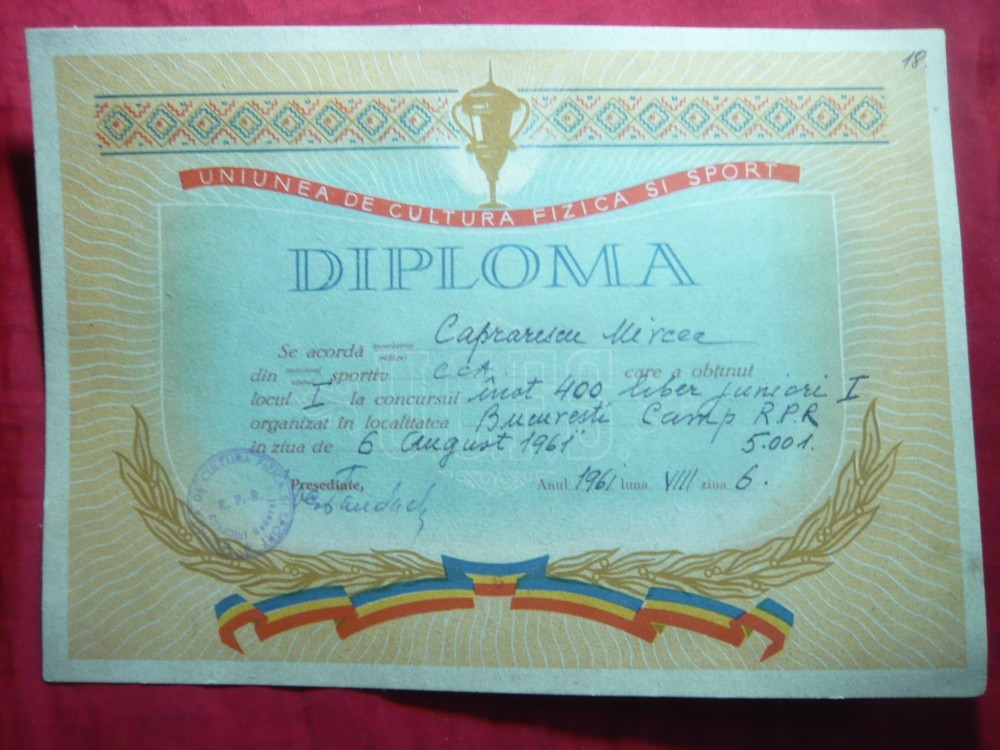 18.
UNIUNEA DE CULTURA FIZICA SI SPORT
DIPLOMA
Se acordă Caprarescu Mircea
din sportiv C.C.A. care a obținut
locul I la concursul înot 400 liber juniori I
organizat în localitatea București Camp R.P.R
în ziua de 6 August 1961 5.00.1.
Președinte, Anul 1961 luna VIII ziua 6.
DE CULTURA FIZICA SPORT
R. P. R.